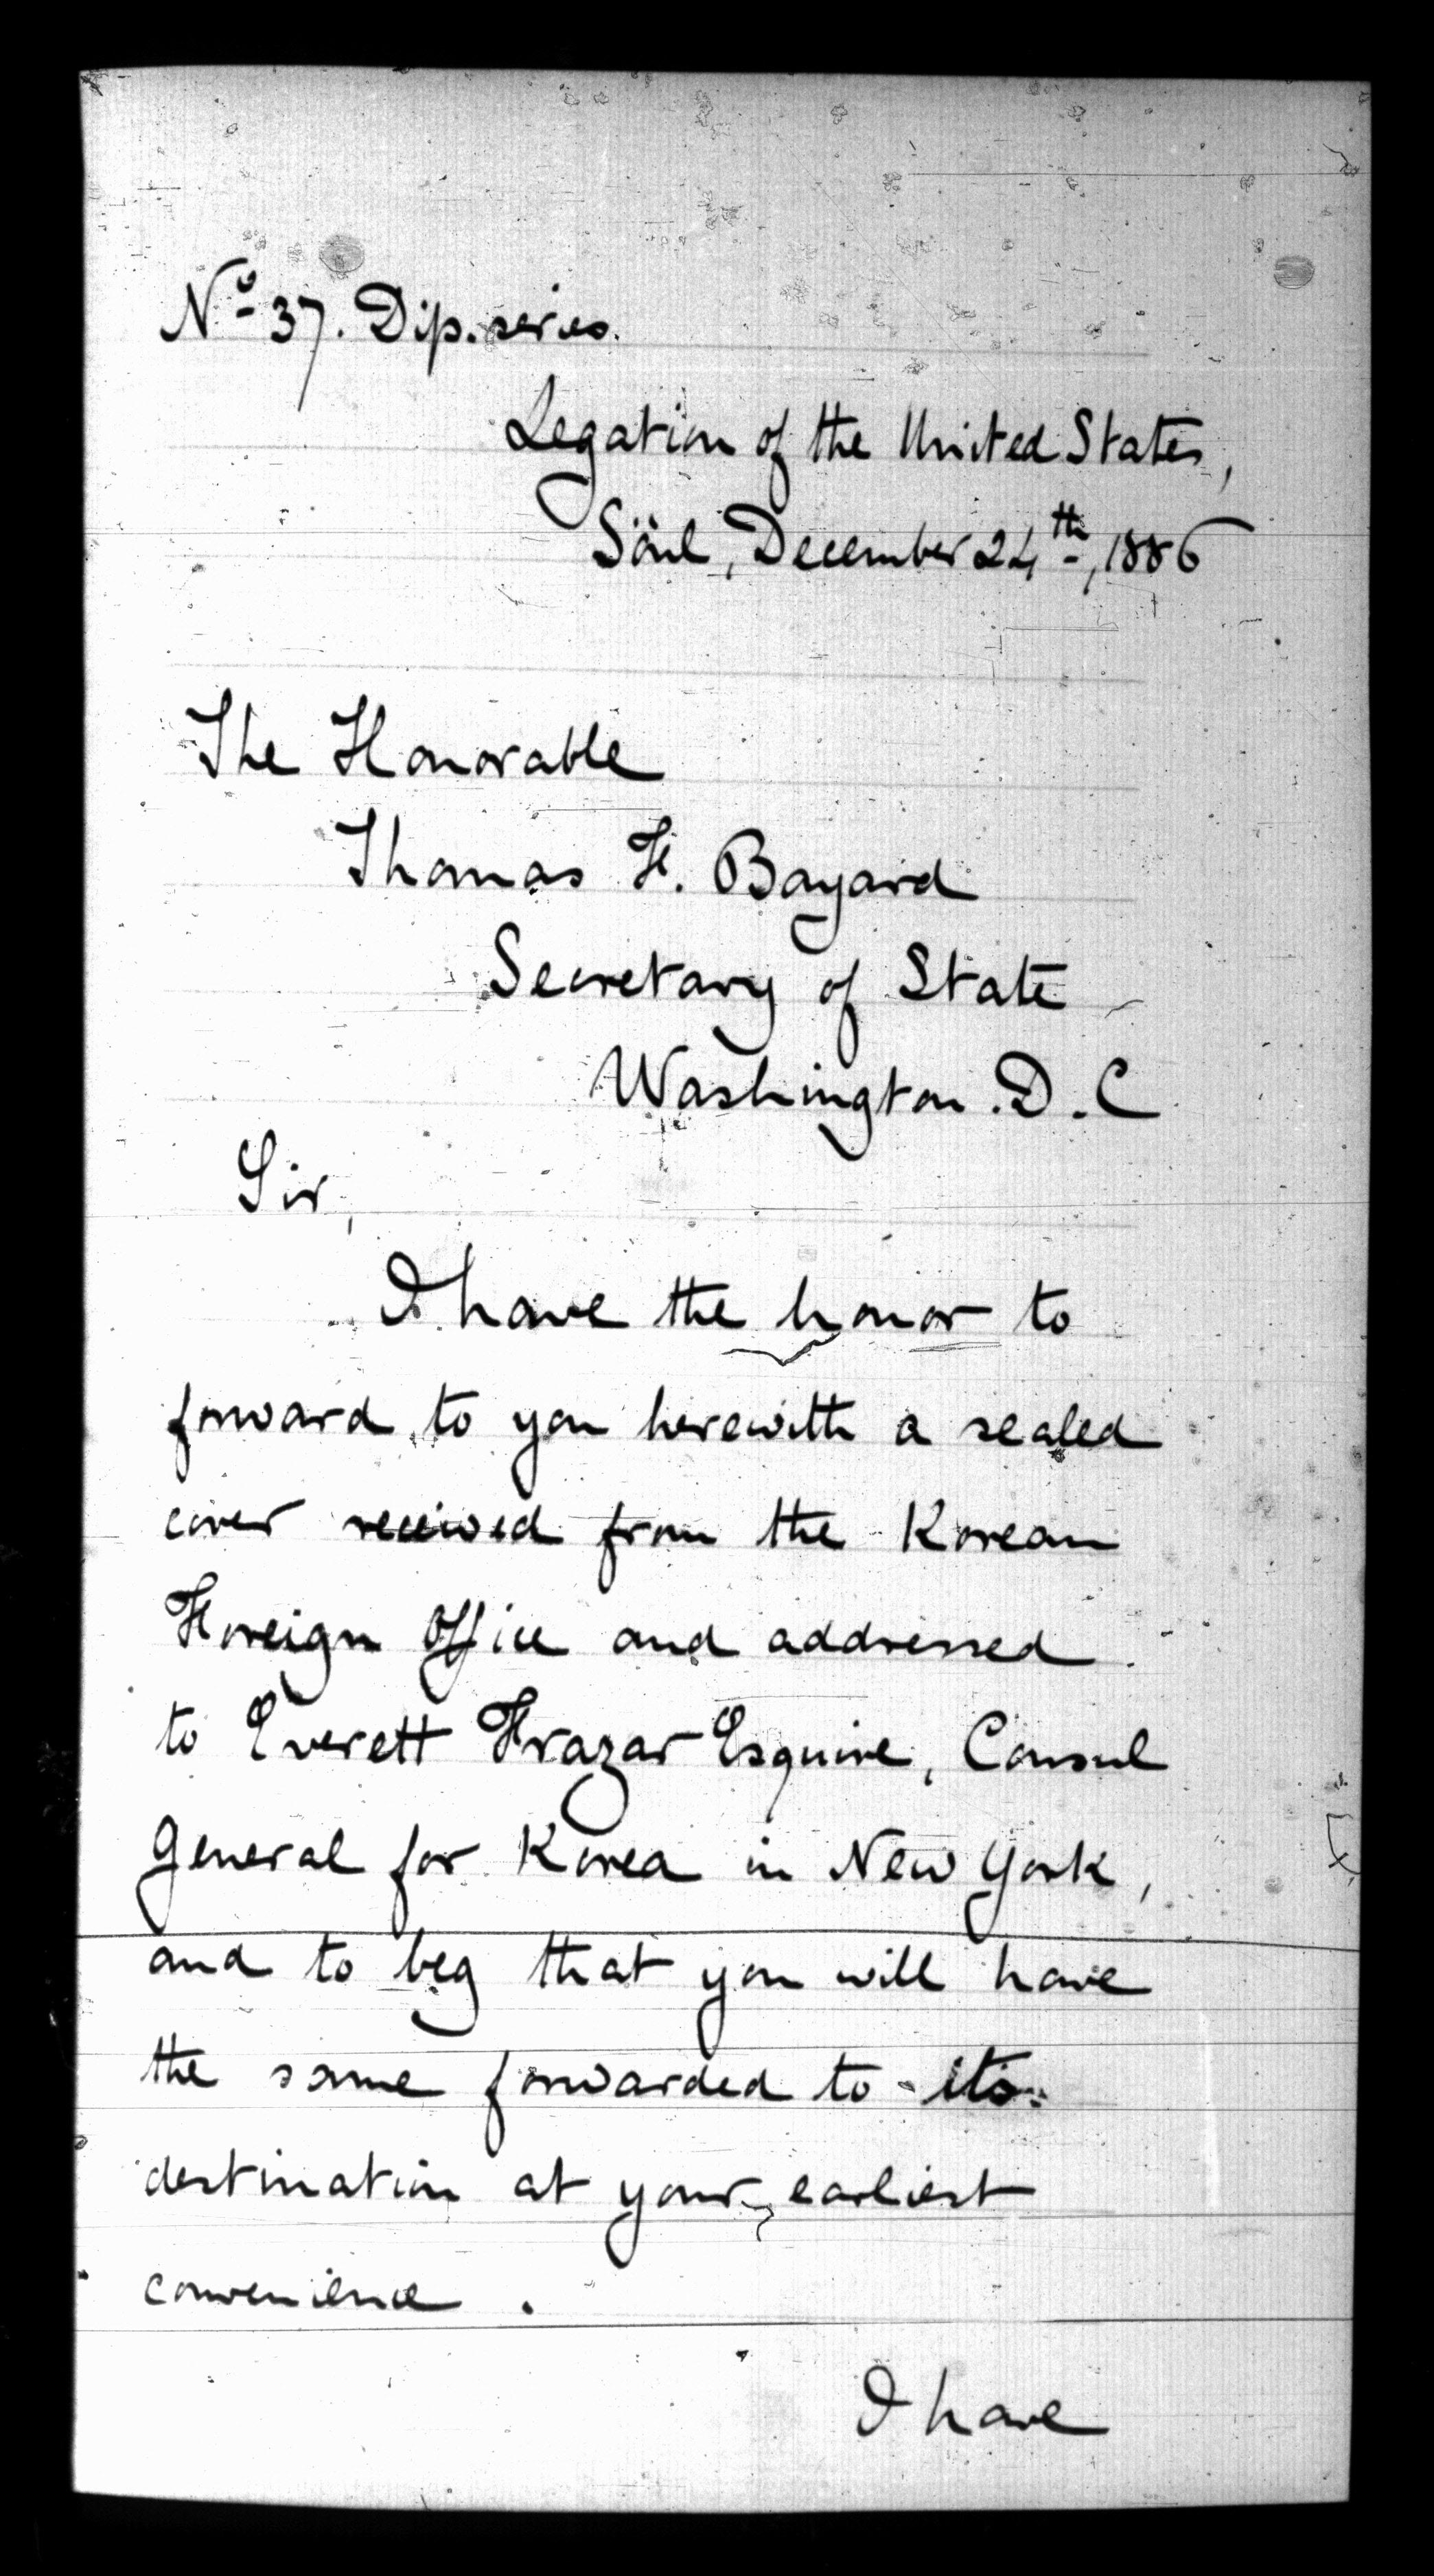 Nº 37. Dip. series.
Legation of the United States,
Söul, December 24th, 1886
The Honorable
Thomas F. Bayard
Secretary of State
Washington. D. C
Sir,
I have the honor to
forward to you herewith a sealed
cover received from the Korean
Foreign Office and addressed
to Everett Frazar Esquire, Consul
General for Korea in New York,
and to beg that you will have
the same forwarded to its
destination at your earliest
convenience.
I have